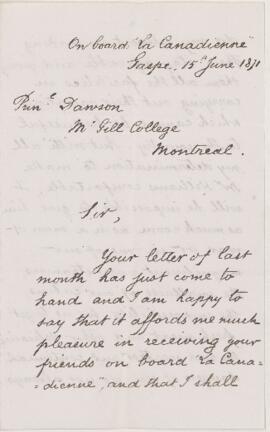 On board "La Canadienne"
Gaspe, 15th June 1871
Prin. Dawson
Mc Gill College
Montreal.
Sir,
Your letter of last
month has just come to
hand and I am happy to
say that it affords me much
pleasure in receiving your
friends on board "La Cana-
-dienne", and that I shall